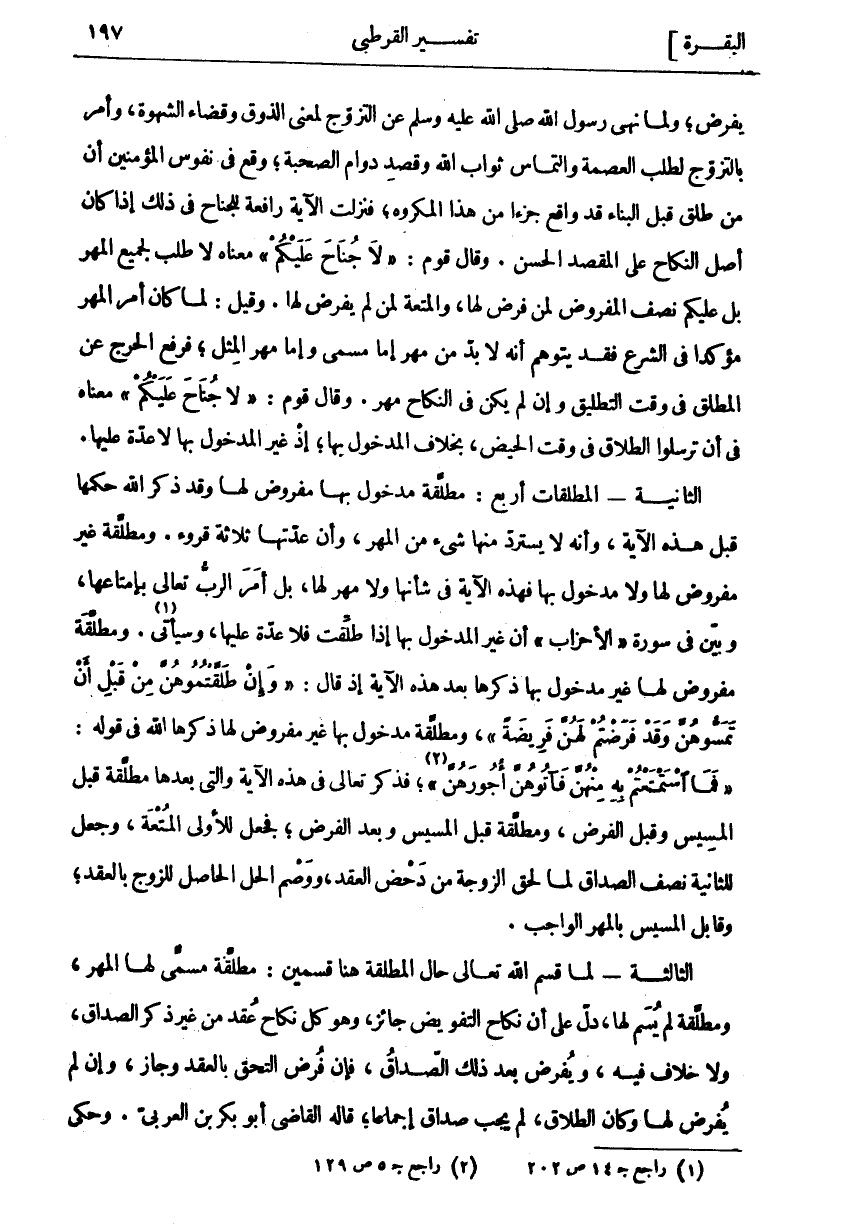 البقـــرة ] تفســـير القرطبى ١٩٧
يفرض؛ ولما نهى رسول الله صلى الله عليه وسلم عن التزوّج لمعنى الذوق وقضاء الشهوة، وأمر
بالتزوّج لطلب العصمة والتماس ثواب الله وقصد دوام الصحبة؛ وقع فى نفوس المؤمنين أن
من طلق قبل البناء قد واقع جزءا من هذا المكروه؛ فنزلت الآية رافعة للجناح فى ذلك إذا كان
أصل النكاح على المقصد الحسن . وقال قوم : « لَا جُنَاحَ عَلَيْكُمْ » معناه لا طلب لجميع المهر
بل عليكم نصف المفروض لمن فرض لها، والمتعة لمن لم يفرض لها . وقيل : لما كان أمر المهر
مؤكدا فى الشرع فقــد يتوهم أنه لا بدّ من مهر إما مسمى وإما مهر المِثل؛ فرفع الحرج عن
المطلق فى وقت التطليق وإن لم يكن فى النكاح مهر . وقال قوم : « لا جُنَاحَ عَلَيْكُمْ » معناه
فى أن ترسلوا الطلاق فى وقت الحيض، بخلاف المدخول بها؛ إذْ غير المدخول بها لا عدّة عليها.
الثانيــة — المطلقات أربع : مطلَّقة مدخول بهــا مفروض لهــا وقد ذكر الله حكمها
قبل هــذه الآية ، وأنه لا يستردّ منها شىء من المهر ، وأن عدّتهــا ثلاثة قروء . ومطلَّقة غير
مفروض لها ولا مدخول بها فهذه الآية فى شأنها ولا مهر لها، بل أمَرَ الربُّ تعالى بإمتاعها،
وبيّن فى سورة « الأحزاب » أن غير المدخول بها إذا طلِّقت فلا عدّة عليها، وسيأتى (١) . ومطلَّقة
مفروض لهــا غير مدخول بها ذكرها بعد هذه الآية إذ قال : « وَإِنْ طَلَّقْتُمُوهُنَّ مِنْ قَبْلِ أَنْ
تَمَسُّوهُنَّ وَقَدْ فَرَضْتُمْ لَهُنَّ فَرِيضَةً »، ومطلَّقة مدخول بها غير مفروض لها ذكرها الله فى قوله :
« فَمَا اسْتَمْتَعْتُمْ بِهِ مِنْهُنَّ فَآتُوهُنَّ أُجُورَهُنَّ » (٢)؛ فذكر تعالى فى هذه الآية والتى بعدها مطلَّقة قبل
المسِيس وقبل الفرض ، ومطلَّقة قبل المسيس وبعد الفرض ؛ فجعل للأولى المُتْعَة ، وجعل
للثانية نصف الصداق لمــا لحق الزوجة من دَحْض العقد، ووَصْم الحل الحاصل للزوج بالعقد؛
وقابل المسيس بالمهر الواجب .
الثالثــة — لمــا قسم الله تعــالى حال المطلقة هنا قسمين : مطلَّقة مسمًّى لهــا المهر ،
ومطلَّقة لم يُسَم لها، دلّ على أن نكاح التفويض جائز، وهو كل نكاح عُقد من غير ذكر الصداق،
ولا خلاف فيــه ، ويُفرض بعد ذلك الصّــداقُ ، فإن فُرض التحق بالعقد وجاز ، وإن لم
يُفرض لهــا وكان الطلاق، لم يجب صداق إجماعا؛ قاله القاضى أبو بكر بن العربىّ . وحكى
(١) راجع جـ ١٤ ص ٢٠٢ (٢) راجع جـ ٥ ص ١٢٩